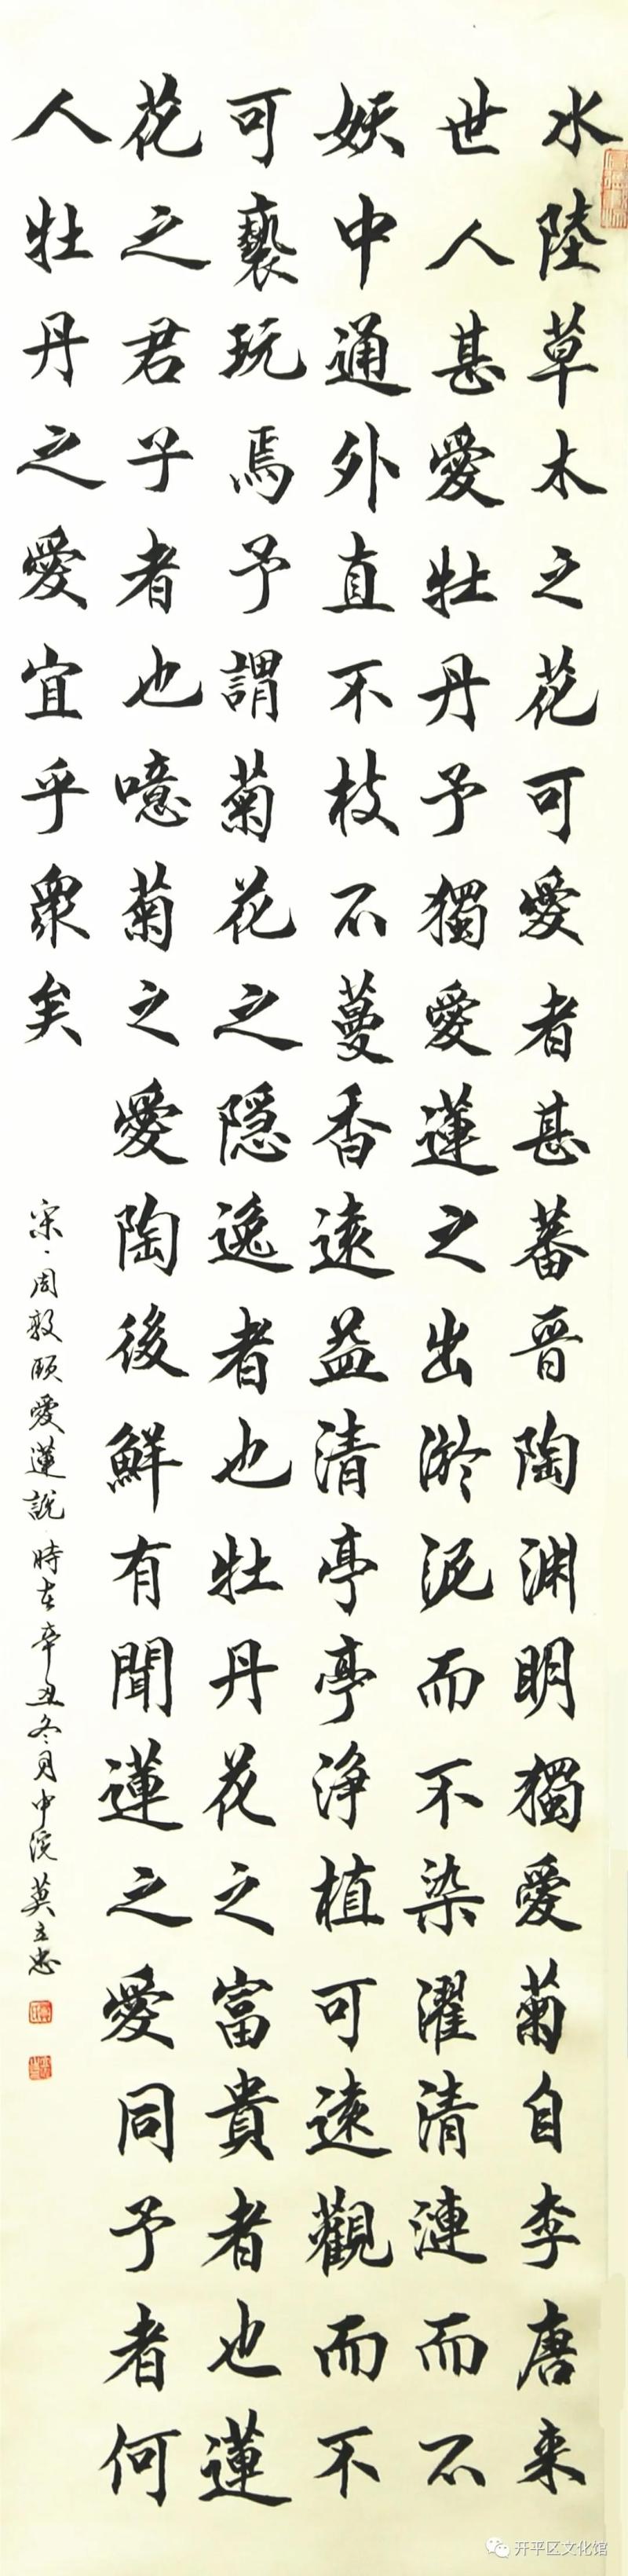 水陸草木之花可愛者甚蕃晋陶渊明獨愛菊自李唐来
世人甚愛牡丹予獨愛蓮之出淤泥而不染濯清漣而不
妖中通外直不枝不蔓香遠益清亭亭淨植可遠觀而不
可褻玩焉予謂菊花之隱逸者也牡丹花之富貴者也蓮
花之君子者也噫菊之愛陶後鮮有聞蓮之愛同予者何
人牡丹之愛宜乎衆矣
宋、周敦頤愛蓮說時在辛丑冬月中浣莫立忠
开平区文化馆